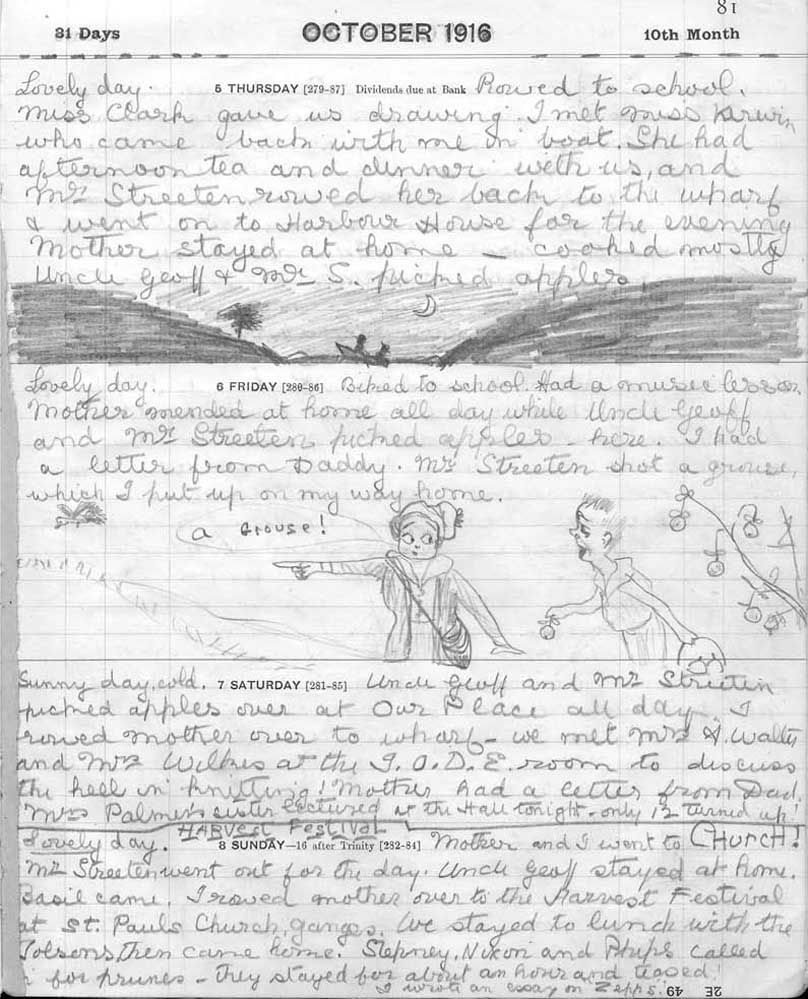 81
31 Days OCTOBER 1916 10th Month
Lovely day. 5 THURSDAY [279-87] Dividends due at Bank Rowed to school.
Miss Clark gave us drawing. I met Miss Kirwin
who came back with me in boat. She had
afternoon tea and dinner with us, and
Mr Streeten rowed her back to the wharf
& went on to Harbour House for the evening
Mother stayed at home – cooked mostly
Uncle Geoff & Mr S. picked apples
Lovely day. 6 FRIDAY [280-86] Biked to school. Had a music lesson
Mother mended at home all day while Uncle Geoff
and Mr Streeten picked apples – here. I had
a letter from Daddy. Mr Streeten shot a grouse,
which I put up on my way home.
a Grouse!
Sunny day, cold. 7 SATURDAY [281-85] Uncle Geoff and Mr Streeten
picked apples over at Our Place all day. I
rowed mother over to wharf – we met Mrs A. Walter
and Mrs Wilkes at the I.O.D.E. room to discuss
the heel in knitting! Mother had a letter from Dad.
Mrs Palmer's sister lectured at the Hall tonight – only 12 turned up!
HARVEST FESTIVAL
Lovely day. 8 SUNDAY—16 after Trinity [282-84] Mother and I went to CHURCH!
Mr Streeten went out for the day. Uncle Geoff stayed at home.
Basil came. I rowed mother over to the Harvest Festival
at St. Pauls Church, Ganges. We stayed to lunch with the
Tolsons, then came home. Stepney, Nixon and Phips called
for prunes – they stayed for about an hour and teased!
I wrote an essay on Zepps. 49 2E